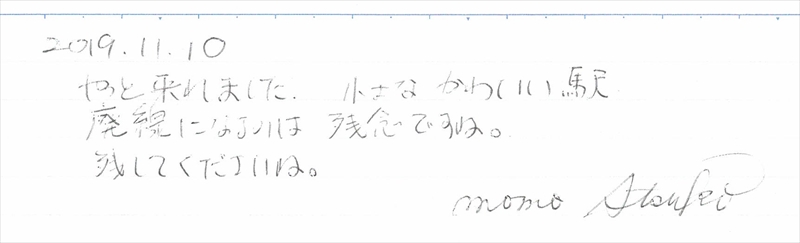 2019.11.10
やっと来れました. 小さな かわいい駅
廃線になるのは 残念ですね。
残してくださいね。
momo